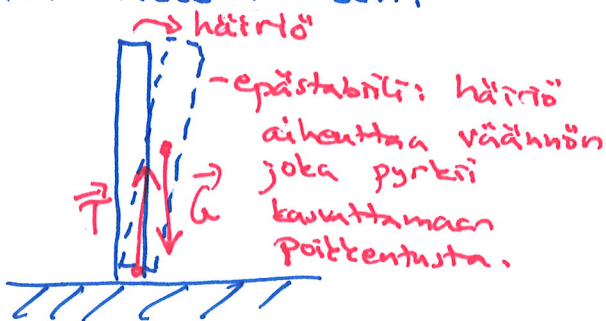 häiriö
-epästabiili: häiriö
aiheuttaa väännön
joka pyrkii
T G
kasvattamaan
poikkeutusta.